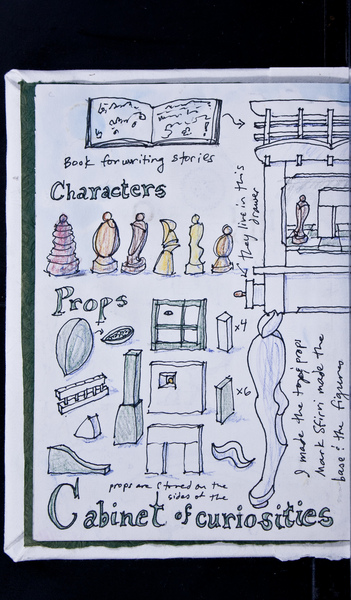 Book for writing stories
Characters
they live in this
drawer
Props
x4
x6
I made the props
Mark Sfirri made the
base & the figures
props are stored on the
sides of the
Cabinet of curiosities